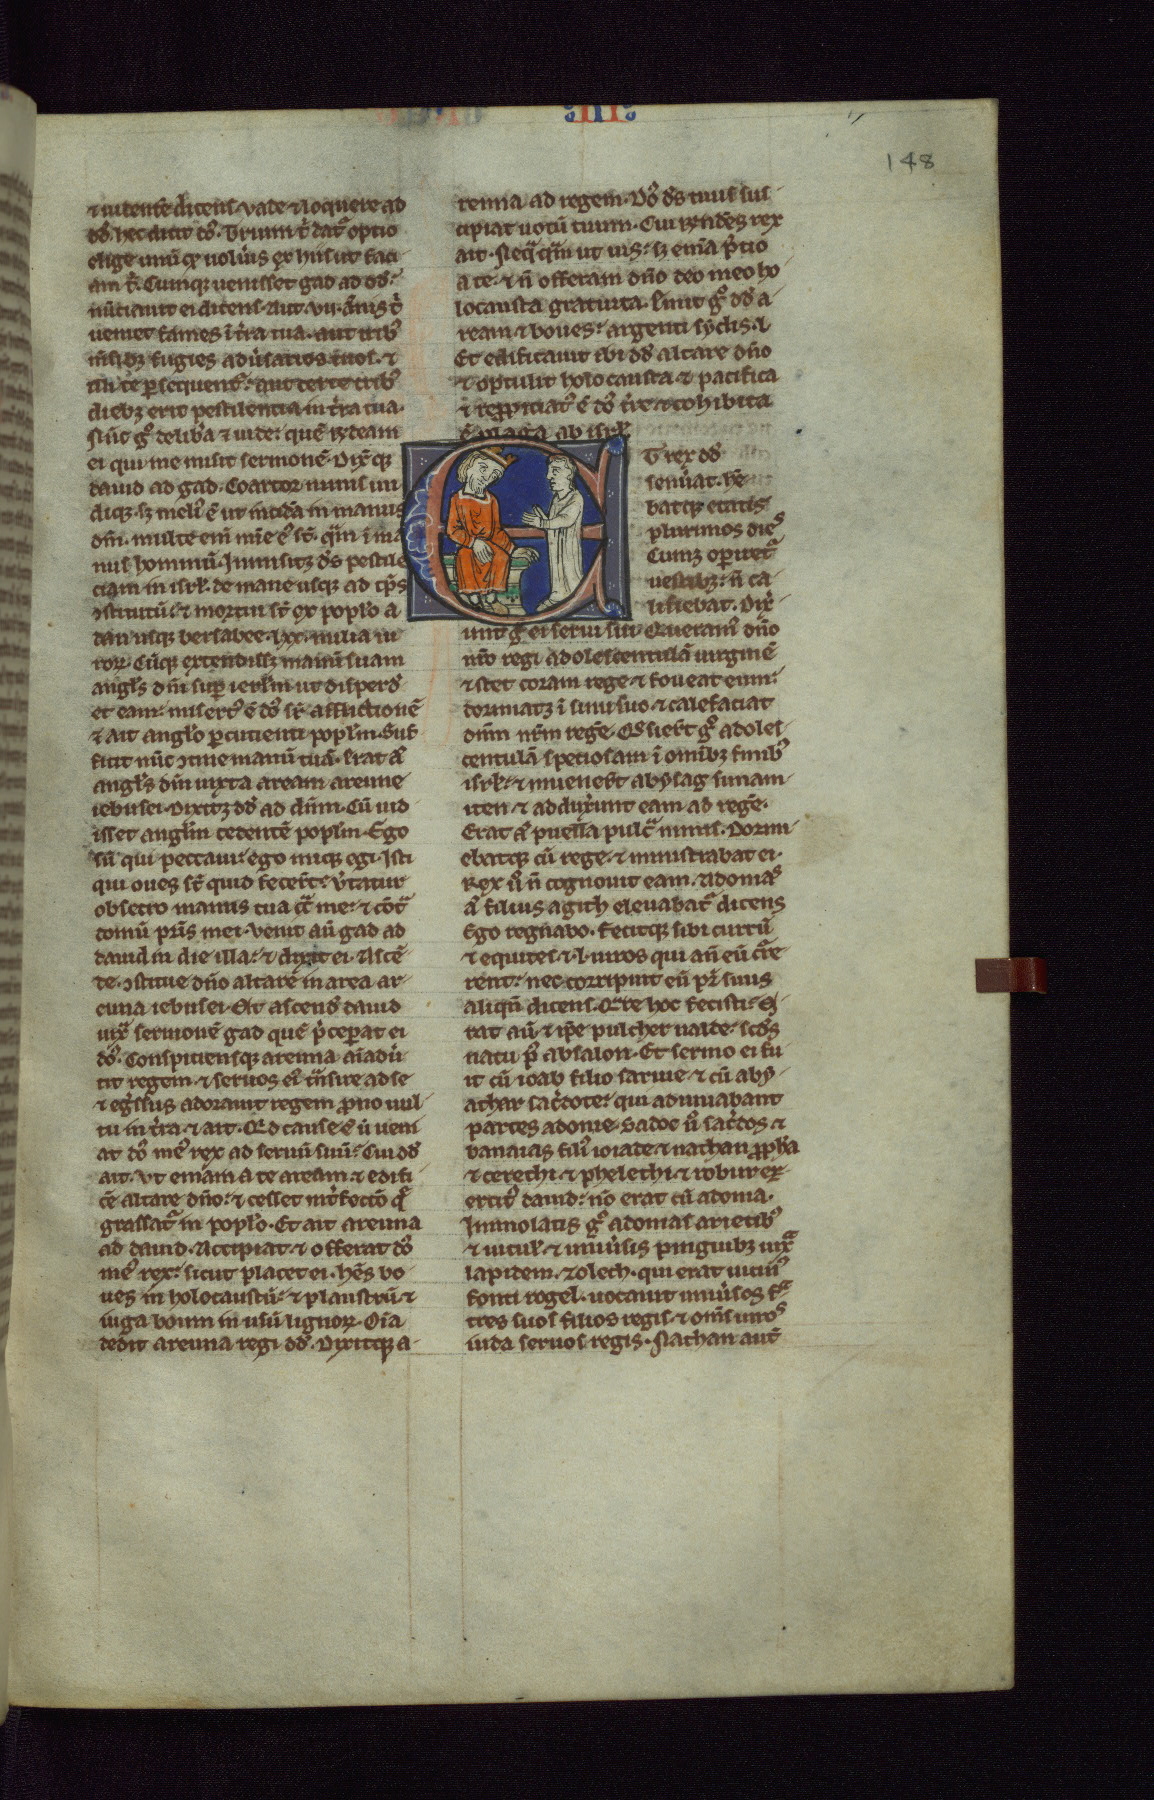 III
148
⁊ uidentē dicens. vade ⁊ loquere ad
dđ. hec dicit dn̄s. Trium t̄ dat᷑ optio
elige unū q̄ uolūis ex hiis ut faci
am t̄. Cumq; uenisset gad ad dđ:
nūtiauit ei dicens. Aut. vii. annis t̄
ueniet fames ī t̄ra tua. aut trib᷒
mēsib; fugies aduˀsarios tuos. ⁊
illi te ꝑsequent᷑. aut certe trib᷒
dieb; erit pestilentia in t̄ra tua.
Nūc gͦ delib̄a ⁊ uide: quē r̄ndeam
ei qui me misit sermonē. Dix̄ q;
dauid ad gad. Coartor nimis un
diq;. sꝫ meli᷒ ē ut incidā in manus
dn̄i. multe eni᷒ mīe ei᷒ st̄. q̄m ī ma
nus hominū. Inmisitq; dn̄s pestilē
ciam in isr̄l. de mane usq; ad tp̄s
ɔstitutū: ⁊ mortui st̄ ex popl̄o a
dan usq; bersabee. lxx. milia ui
roꝝ. Cūq; extendissꝫ manū suam
angl̄s dn̄i suꝑ ierl̄m ut disperdˀ
et eam: misert᷒ ē dn̄s sr̄ afflictionē
⁊ ait angl̄o ꝑcutienti popl̄m. Suf
ficit nūc ɔtine manū tuā. Erat aͭ
angl̄s dn̄i iuxta aream areune
iebusei. Dixitq; dđ ad dn̄m. Cū uid
isset angl̄m cedentē popl̄m. Ego
sū qui peccaui. ego iniq; egi. Isti
qui oues st̄ quid fecer̄t. v̄tatur
obsecro manus tua ct̄ me: ⁊ cōt᷑
domū pr̄is mei. Venit aū gad ad
dauid in die illa: ⁊ dixit ei. Ascē
de. ɔstitue dn̄o altare in area ar
euna iebusei. Et ascendˀ dauid
iux̄ sermonē gad quē p̄ceperat ei
dn̄s. Conspiciensq; areuna aīadū
tit regem ⁊ seruos ei᷒ trn̄sire ad se
⁊ egˀssus adorauit regem ꝓno uul
tu in t̄ra. ⁊ ait. Qđ cause ē ū ueni
at dn̄s me᷒ rex ad seruū suū. Cui dđ
ait. Ut emam a te aream. ⁊ edifi
cē altare dn̄o: ⁊ cesset int̄fectio q̄
grassat᷑ in popl̄o. Et ait areuna
ad dauid. Accipiat ⁊ offerat dn̄s
me᷒ rex: sicut placet ei. hn̄s bo
ues in holocaustū: ⁊ plaustrū ⁊
iuga boum in usū lignoꝝ. Oīa
dedit areuna regi dđ. Dixitq; a
reuna ad regem. Dn̄s ds̄ tuus sus
cipiat uotū tuum. Cui r̄ndēs rex
ait. Neq̄q̄m ut uis: sꝫ emā p̄cio
a te. ⁊ n̄ offeram dn̄o deo meo ho
locausta gratuita. Emit gͦ dđ a
ream ⁊ boues: argenti syclis. l
Et edificauit ibi dđ altare dn̄o
⁊ optulit holocausta ⁊ pacifica
⁊ repropiciat᷒ ē dn̄s t̄re. ⁊ cohibita
ē plaga ab isr̄l
ET rex dđ
senūat. hēˀ
batq; etatis
plurimos dies
Cumq; operiret᷑
uestib;: n̄ ca
lefiebat. Dix̄
unt gͦ ei serui sui. Queram᷒ dn̄o
nr̄o regi adolescentulā uirginē
⁊ stet coram rege ⁊ foueat eum:
dormiatq; ī sinu suo ⁊ calefaciat
dn̄m nr̄m regē. Qˀsier̄t gͦ adoles
centulā speciosam ī omīb; finib᷒
isr̄l. ⁊ inuener̄t abysag sunam
iten ⁊ adduxerunt eam ad regē.
Erat aͭ puella pulc᷑ nimis. Dormi
ebatq; cū rege. ⁊ ministrabat ei.
Rex ū n̄ cognouit eam. Adonias
aͭ filius agith eleuabat᷑ dicens
Ego regnabo. Fecitq; sibi currū
⁊ equites ⁊. l. uiros qui an̄ eū cr̄re
rent: nec corripuit eū pr̄ suus
aliqn̄ dicens. Qͬre hoc fecisti. E
rat aū ⁊ ip̄e pulcher ualde. scđs
natu p᷒ absalon. Et sermo ei fu
it cū ioab filio saruie. ⁊ cū aby
athar sac̄dote: qui adiuuabant
partes adonie. Sadoc ū sac̄dos ⁊
banaias fili᷒ ioiade ⁊ nathan ꝓph̄a
⁊ cerethi ⁊ phelethi ⁊ robur ex
ercit᷒ dauid: nō erat cū adonia.
Immolatis gͦ adonias arietib᷒
⁊ uitul᷑ ⁊ uniūsis pinguib; iux̄
lapidem. zoleth. qui erat uicin᷒
fonti rogel. uocauit uniūsos fr̄a
tres suos filios regis. ⁊ om̄s uiros
iuda seruos regis. Nathan aut̄